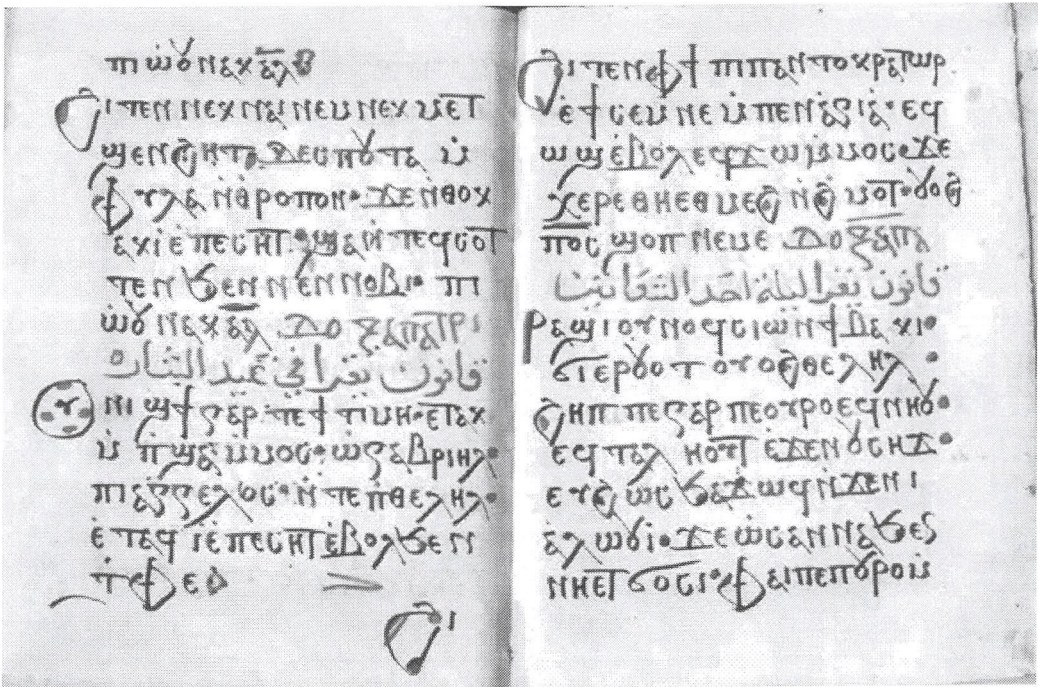 ⲡⲓⲱⲟⲩ ⲛⲁⲭ ⲁⲗ
ϩⲓⲧⲉⲛ ⲛⲉⲭ ⲛⲁⲓ ⲛⲉⲙ ⲛⲉⲭ ⲙⲉⲧ
ϣⲉⲛϩⲏⲧ· ⲇⲉⲥⲡⲟⲩⲧⲁ ⲙ̇
ⲫⲩⲗⲁⲛⲑⲣⲟⲡⲟⲛ· ϫⲉ ⲛⲑⲟⲭ
ⲁⲭⲓ ⲉ̇ⲡⲉⲥⲏⲧ· ϣⲁⲛ̇ ⲧⲉϥⲥⲟⲧ
ⲧⲉⲛ ϧⲉⲛ ⲛⲉⲛⲛⲟⲃⲓ· ⲡⲓ
ⲱⲟⲩ ⲛⲁⲭ ⲁⲗ ⲇⲟⲝⲁⲡⲁⲧⲣⲓ
قانون تقرا في عيد البشاره
ⲟⲩⲛⲓϣϯ ⲅⲁⲣ ⲡⲉ ϯⲧⲓⲙⲏ· ⲉⲧⲁⲭ
ⲙ̇ⲡ̇ϣⲁ ⲙ̇ⲙⲟⲥ· ⲱ̇ ⲅⲁⲃⲣⲓⲏⲗ·
ⲡⲓⲁⲅⲅⲉⲗⲟⲥ· ⲛ̇ⲧⲉ ⲡ̇ⲑⲉⲗⲏⲗ·
ⲉ̇ⲧⲉϥⲓ̇ ⲉ̇ⲡⲉⲥⲏⲧ ⲉ̇ⲃⲟⲗϧⲉⲛ
ⲧ̇ⲫⲉ
ϩⲓ
ϩⲓⲧⲉⲛ ⲫϯ ⲡⲓⲡⲁⲛⲧⲟⲭⲣⲁⲧⲱⲣ
ⲉ̇ϯⲥⲉⲙⲛⲉ ⲙ̇ⲡⲉⲛⲁⲅⲓⲁ· ⲉϥ
ⲱϣ ⲉ̇ⲃⲟⲗ ⲉϥϫⲱ ⲙ̇ⲙⲟⲥ· ϫⲉ
ⲭⲉⲣⲉ ⲑⲏⲉⲑⲙⲉϩ ⲛ̇ϩⲙⲟⲧ· ⲟⲩⲟϩ
ⲡⲟⲥ ϣⲟⲡ ⲛⲉⲙⲉ ⲇⲟⲝⲁⲡⲁ
قانون تقرا ليلة احد الشعانين
ⲣⲁϣⲓ ⲟⲩⲛⲟϥ ⲥⲓⲱⲛ ϯϣⲉⲣⲓ·
ϭⲓⲉⲣⲟⲩⲟⲧ ⲟⲩⲟϩ ⲑⲉⲗⲏⲗ·
ϩⲏⲡⲡⲉ ⲅⲁⲣ ⲡⲉⲟⲩⲣⲟ ⲉϥⲛⲏⲟⲩ·
ⲉϥⲧⲁⲗⲏⲟⲩⲧ ⲉϫⲉⲛ ⲟⲩⲥⲏϫ·
ⲉⲩϩⲱⲥ ϧⲁϫⲱϥ ⲛ̇ϫⲉ ⲛⲓ
ⲁ̇ⲗⲱⲟⲩⲓ· ϫⲉ ⲱ̇ⲥⲁⲛⲛⲁ ϧⲉⲛ
ⲛⲏⲉⲧϭⲟⲥⲓ· ⲫⲁⲓ ⲡⲉ ⲡⲟⲩⲣⲟ ⲙ̇